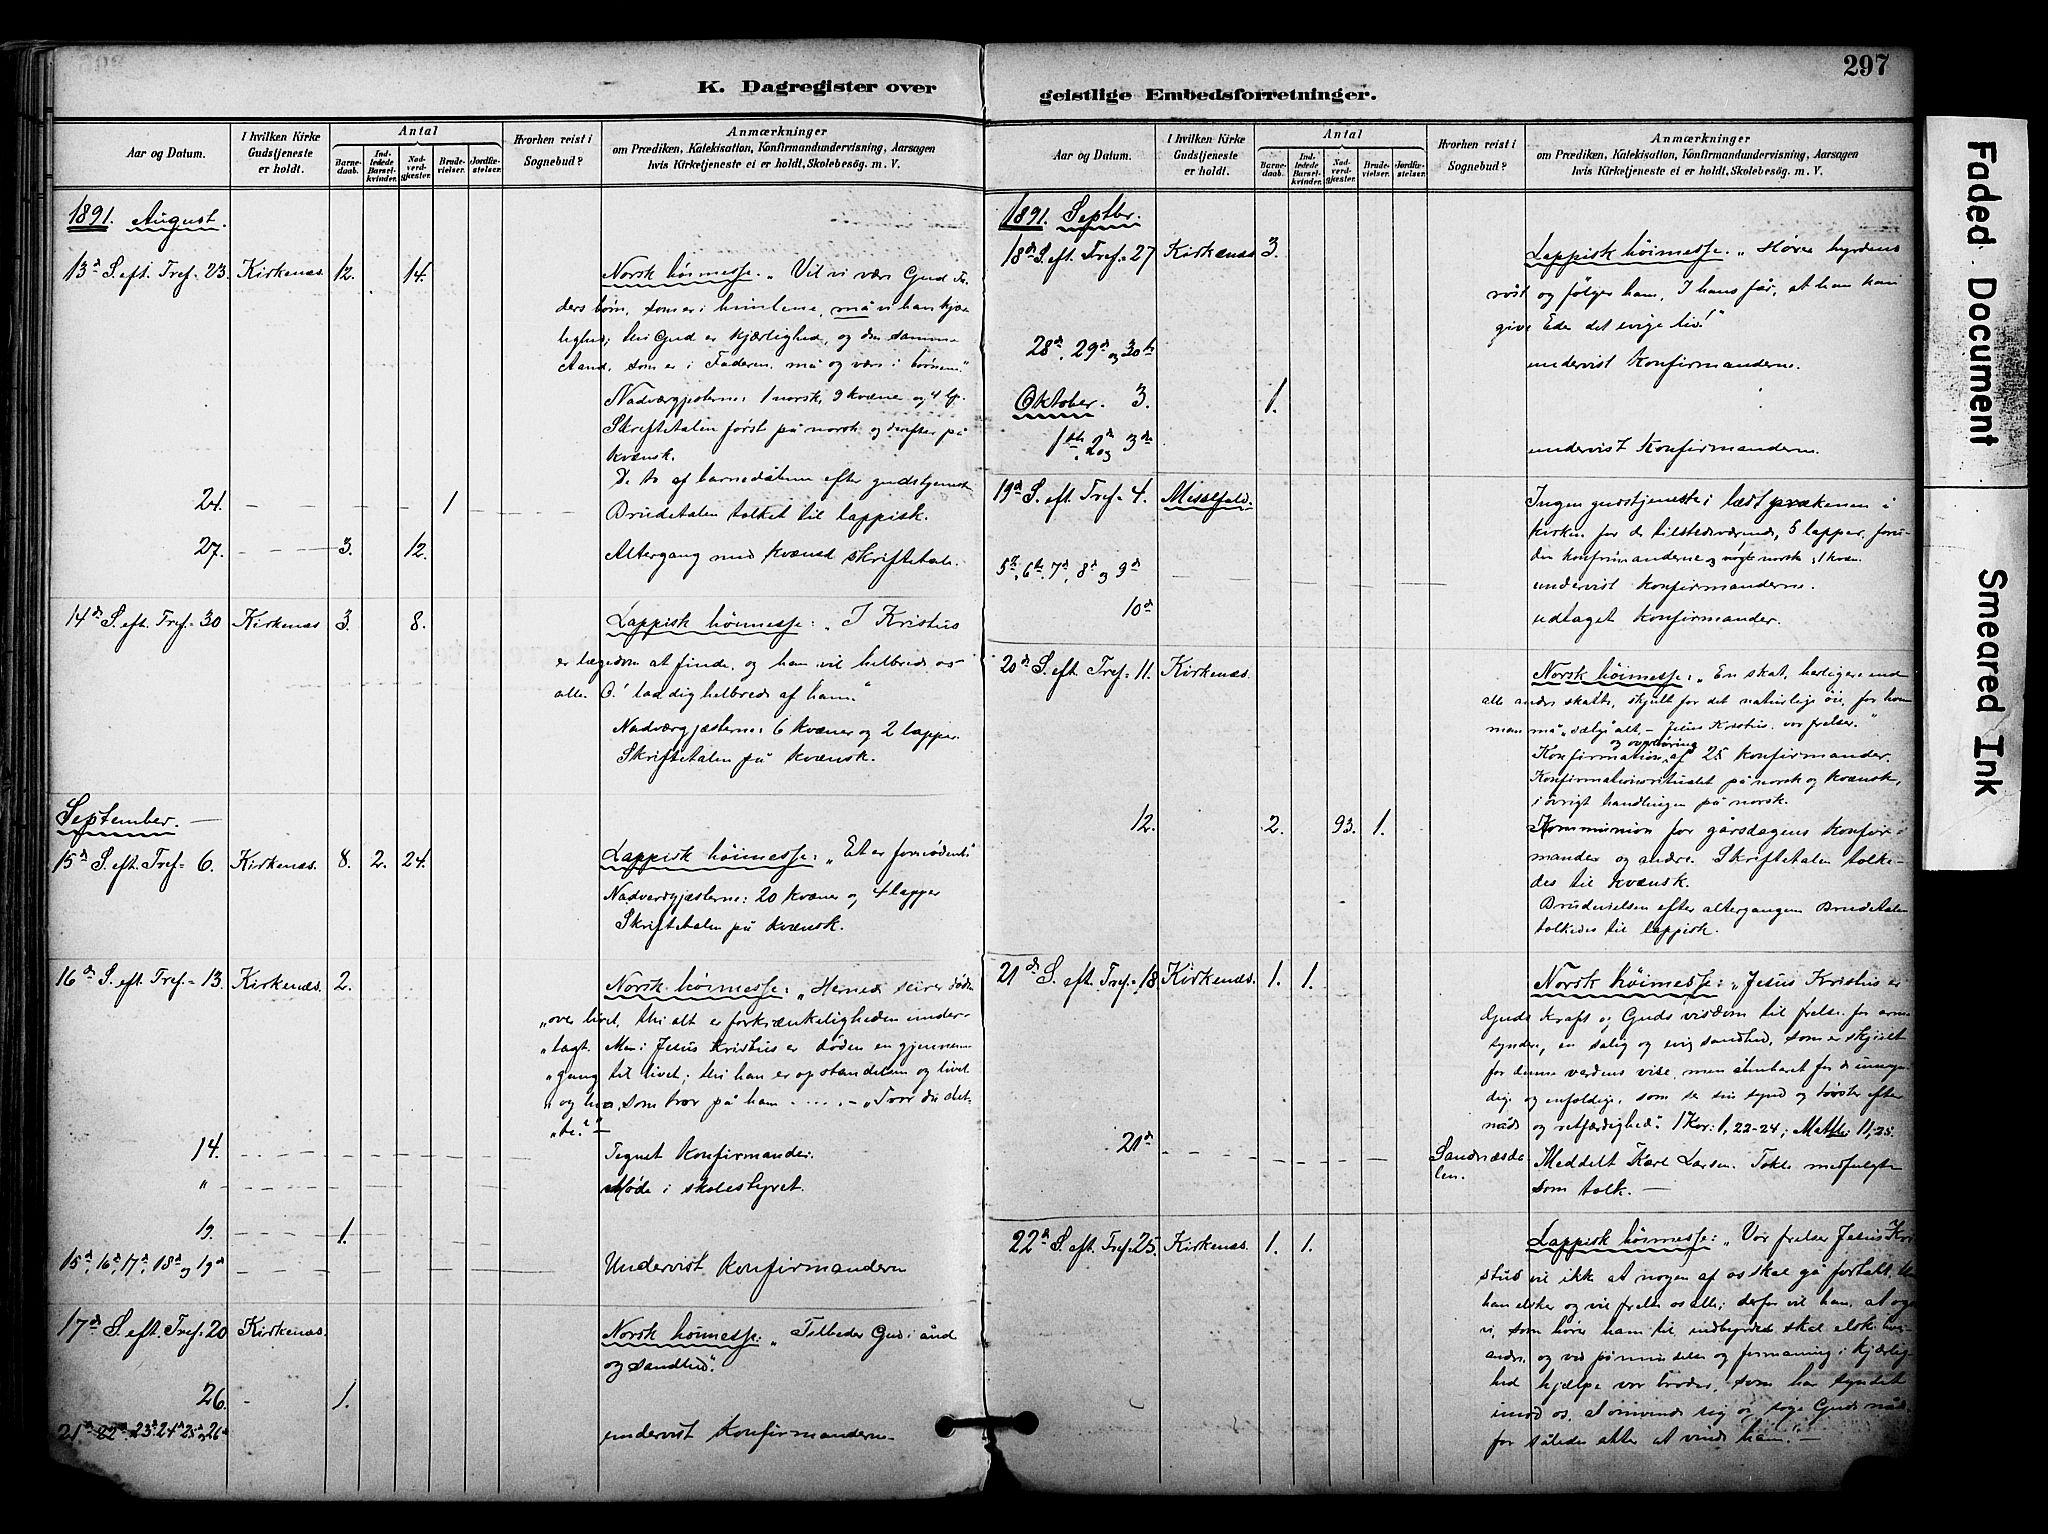 297
K. Dagregister over
geistlige Embedsforretninger.
Aar og Datum.
I hvilken Kirke Gudstjeneste er holdt.
Antal
Barnedaab.
Indledede Barselkvinder.
Nadverdgjæster.
Brudevielser.
Jordfæstelser.
Hvorhen reist i Sognebud?
Anmærkninger
om Prædiken, Katekisation, Konfirmandundervisning, Aarsagen
hvis Kirketjeneste ei er holdt, Skolebesög. m. V.
1891. August.
13d S. eft. Tref. 23. Kirkenæs. 12. 14. Norsk høimesse. „Vil vi være Gud Fa-
ders børn, som er i himlene, må vi ham kjær-
lighed; thi Gud er kjærlighed, og den samme
Aand, som er i Faderen, må og være i børnene."
Nadvergjæsterne: 1 norsk, 9 kvæne og 4 lp.
Skriftetalen først på norsk og derefter på
kvænsk.
De to af barnedåbene efter gudstjenest
24. 1 Brudetalen tolket til lappisk.
27. 3. 12. Altergang med kvænsk skriftetale.
14d S. eft. Tref. 30 Kirkenæs 3. 8. Lappisk høimesse: „I Kristus
er lægedom at finde, og han vil helbrede os
alle. O! lad dig helbrede af ham."
Nadværgjæsterne: 6 kvæner og 2 lapper.
Skriftetalen på kvænsk.
September.
15d S. eft. Tref. 6. Kirkenæs. 8. 2. 24. Lappisk høimesse: „Et er fornødent"
Nadverdgjæsterne: 20 kvæner og 4 lapper
Skriftetalen på kvænsk.
16d S. eft. Tref. 13. Kirkenæs. 2. Norsk høimesse: „Hernede seirer døden
„over livet, thi alt er forkrænkeligheden under-
„lagt. Men i Jesus Kristus er døden en gjennem-
„gang til livet; thi han er opstandelsen og livet
„og hver, som tror på ham .... – „Tror du det-
„te?"
14. Tegnet konfirmander.
„ Møde i skolestyret.
19. 1.
15d, 16d, 17d, 18d og 19d Undervist konfirmanderne
17d S. eft. Tref. 20 Kirkenæs. Norsk høimesse: „Tilbeder Gud i ånd
og sandhed".
26. 1.
21d 22d 23d 24d 25d og 26d undervist konfirmanderne.
Aar og Datum.
I hvilken Kirke Gudstjeneste er holdt.
Antal
Barnedaab.
Indledede Barselkvinder.
Nadverdgjæster.
Brudevielser.
Jordfæstelser.
Hvorhen reist i Sognebud?
Anmærkninger
om Prædiken, Katekisation, Konfirmandundervisning, Aarsagen
hvis Kirketjeneste ei er holdt, Skolebesög. m. V.
1891. Septbr.
18d S. eft. Tref. 27 Kirkenæs 3. Lappisk høimesse. „Hører hyrdens
røst og følger ham, I hans får, at han kan
give Eder det evige liv!"
28d, 29d og 30te undervist konfirmanderne.
Oktober. 3. 1.
1ste, 2den og 3die undervist konfirmanderne.
19d S. eft. Tref. 4. Ingen gudstjeneste; læst præken i
kirken for de tilstedeværende, 5 lapper, foru-
den konfirmanderne og nogle norske, 1 kvæn.
5te, 6te, 7d, 8d og 9d undervist konfirmanderne.
10d udtaget konfirmander.
20d S. eft Tref. 11. Kirkenæs. Norsk høimesse: „En skat, herligere end
alle andre skatte, skjult for det naturlige øie, for hvem
man må sælge alt, – Jesus Kristus vor frelser."
Konfirmation og overhøring af 25 konfirmander.
Konfirmationsritualet på norsk og kvænsk,
i øvrigt handlingen på norsk.
12. 2. 93. 1. Kommunion for gårsdagens konfir-
mander og andre. Skriftetalen tolke-
des til kvænsk.
Brudevielsen efter altergangen. Brudetalen
tolkedes til lappisk.
21d S. eft. Tref. 18 Kirkenæs. 1. 1. Norsk høimesse: „Jesus Kristus er
Guds kraft og Guds visdom til frelse for arme
syndere, en salig og evig sandhed, som er skjult
for denne verdens vise, men åbenbaret for de umyn-
dige og enfoldige, som se sin synd og tørster efter
nåde og retfærdighed." 1 Kor: 1, 22-24; Matth: 11, 25.
21d Sandnæsda-
len. Meddelt Karl Larsen. Tokle medfulgte
som tolk. –
22d S. eft. Tref. 25. Kirkenæs. 1. 1. Lappisk høimesse: „Vor frelser Jesus Kri-
stus vil ikke at nogen af os skal gå fortabt,
han elsker og vil frelse os alle; derfor vil han, at og
vi, som hører ham til, indbyrdes skal elske hver-
andre, og ved påmindelse og formaning i kjærlig-
hed hjælpe vor broder, som har syndet
imod os, at omvende sig og søge Guds nåde
for således atter at vinde ham". –
Faded Document
Smeared Ink